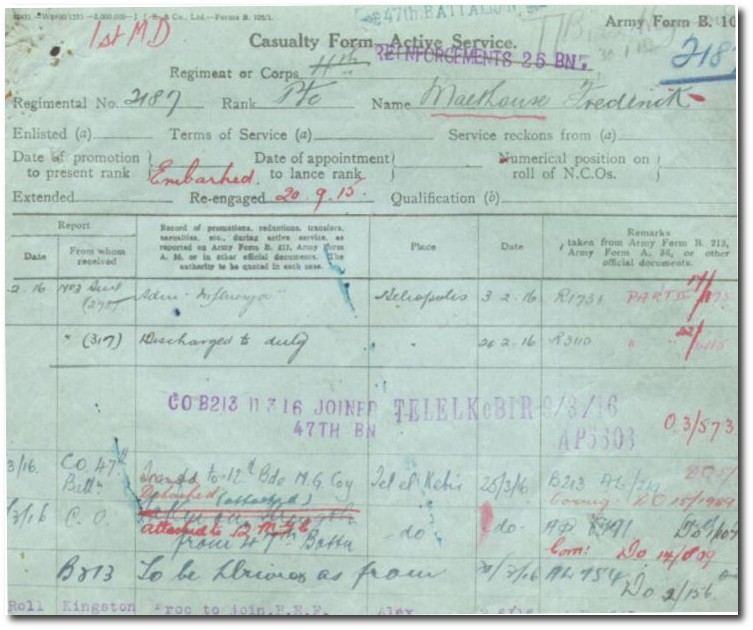 47TH BATTALION
Army Form B. 10
1st MD
Casualty Form—Active Service.
REINFORCEMENTS 26 BN
218
Regiment or Corps
Regimental No. 2187 Rank Pte Name Malthouse Frederick
Enlisted (a) Terms of Service (a) Service reckons from (a)
Date of promotion to present rank Date of appointment to lance rank Numerical position on roll of N.C.Os.
Embarked
Extended Re-engaged 20.9.15 Qualification (b)
Report
Date
From whom received
Record of promotions, reductions, transfers,
casualties, etc., during active service, as
reported on Army Form B. 213, Army Form
A. 36, or in other official documents. The
authority to be quoted in each case.
Place
Date
Remarks
taken from Army Form B. 213,
Army Form A. 36, or other
official documents.
2.16 Influenza Heliopolis 3.2.16 R1731 PART II
" (317) Discharged to duty " 2.16 R3110
CO B213 11 3 16 JOINED TELELKEBIR 9/3/16
47TH BN AP5303
03/573
3/16. CO. 47th Battn Transfd to 12th Bde M.G. Coy Tel el Kebir 25/3/16 B213
Detached (attached)
C.O. do do
attached to 12 M.G.C.
from 47th Battn
Do 14/809
B213 To be Driver as from AL 754
Do 2/156
Roll Kingston Proc to join B.E.F. Alex